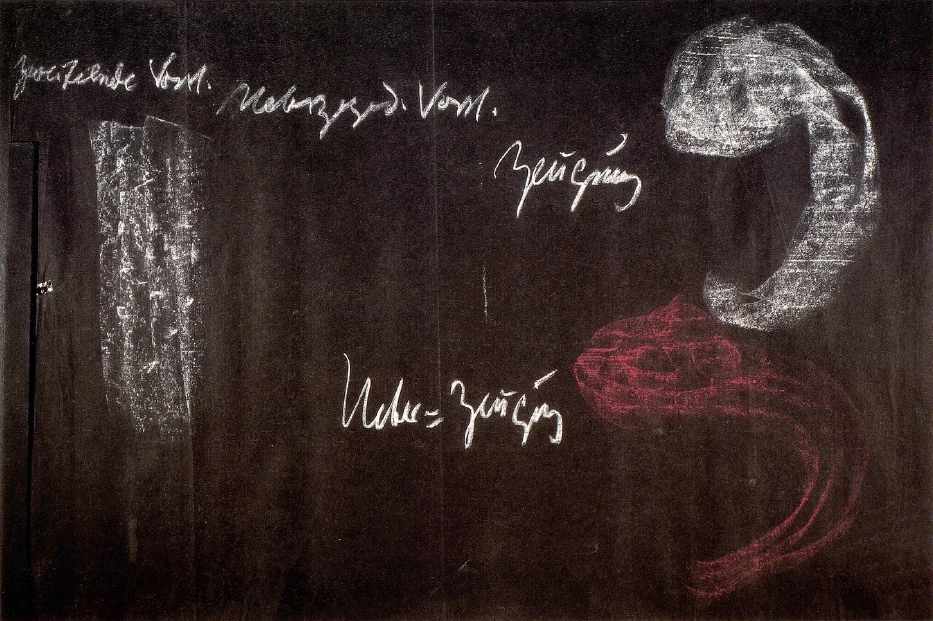 zweifelnde Vorst.
Ueberzeugend. Vorst.
Zeugung
Ueber=Zeugung